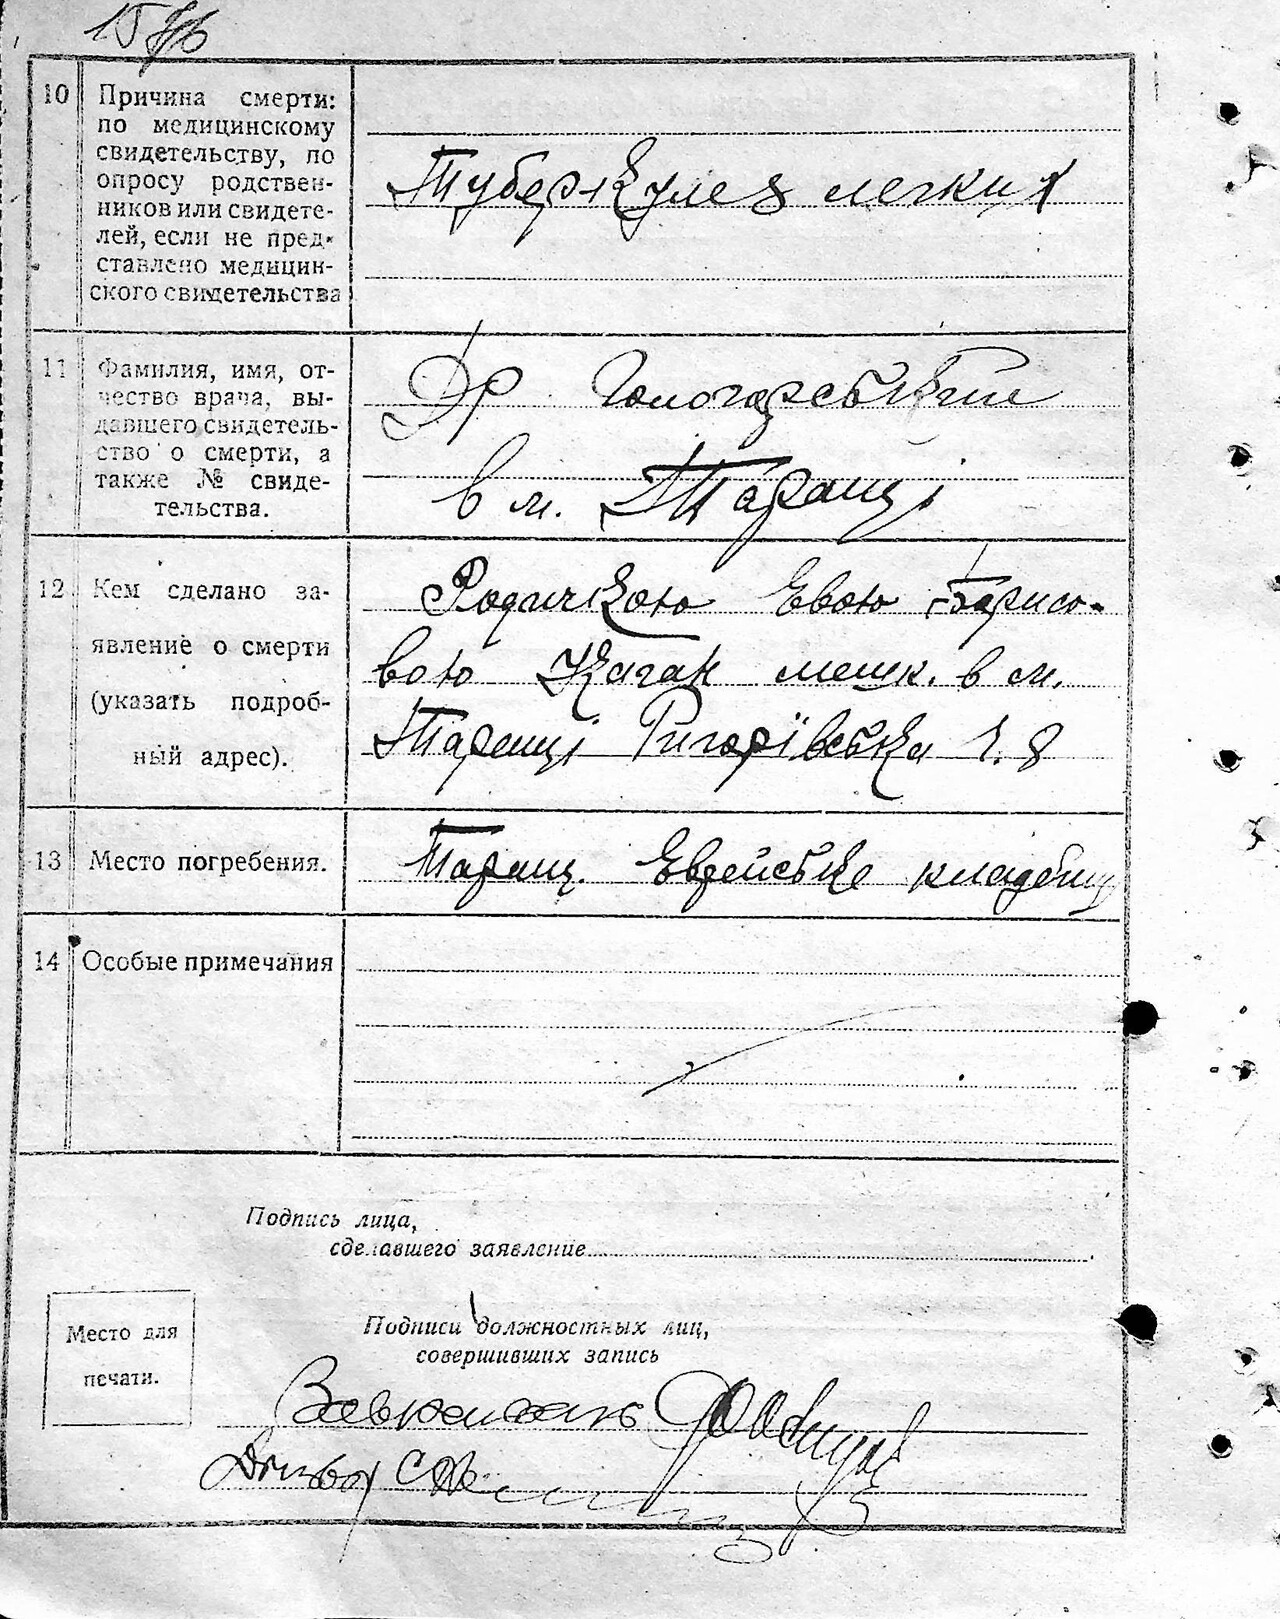 10 Причина смерти:
по медицинскому
свидетельству, по
опросу родствен-
ников или свидете-
лей, если не пред-
ставлено медицин-
ского свидетельства
Туберкулез легких
11 Фамилия, имя, от-
чество врача, вы-
давшего свидетель-
ство о смерти, а
также № свиде-
тельства.
Др Гологорський
в м. Таращі
12 Кем сделано за-
явление о смерти
(указать подроб-
ный адрес).
Родичкою Евою Борисо-
вою Каган мешк. в м.
Таращі Григорівська ч. 8
13 Место погребения.
Таращ. Еврейське кладбищ
14 Особые примечания
Подпись лица,
сделавшего заявление
Место для
печати.
Подписи должностных лиц,
совершивших запись